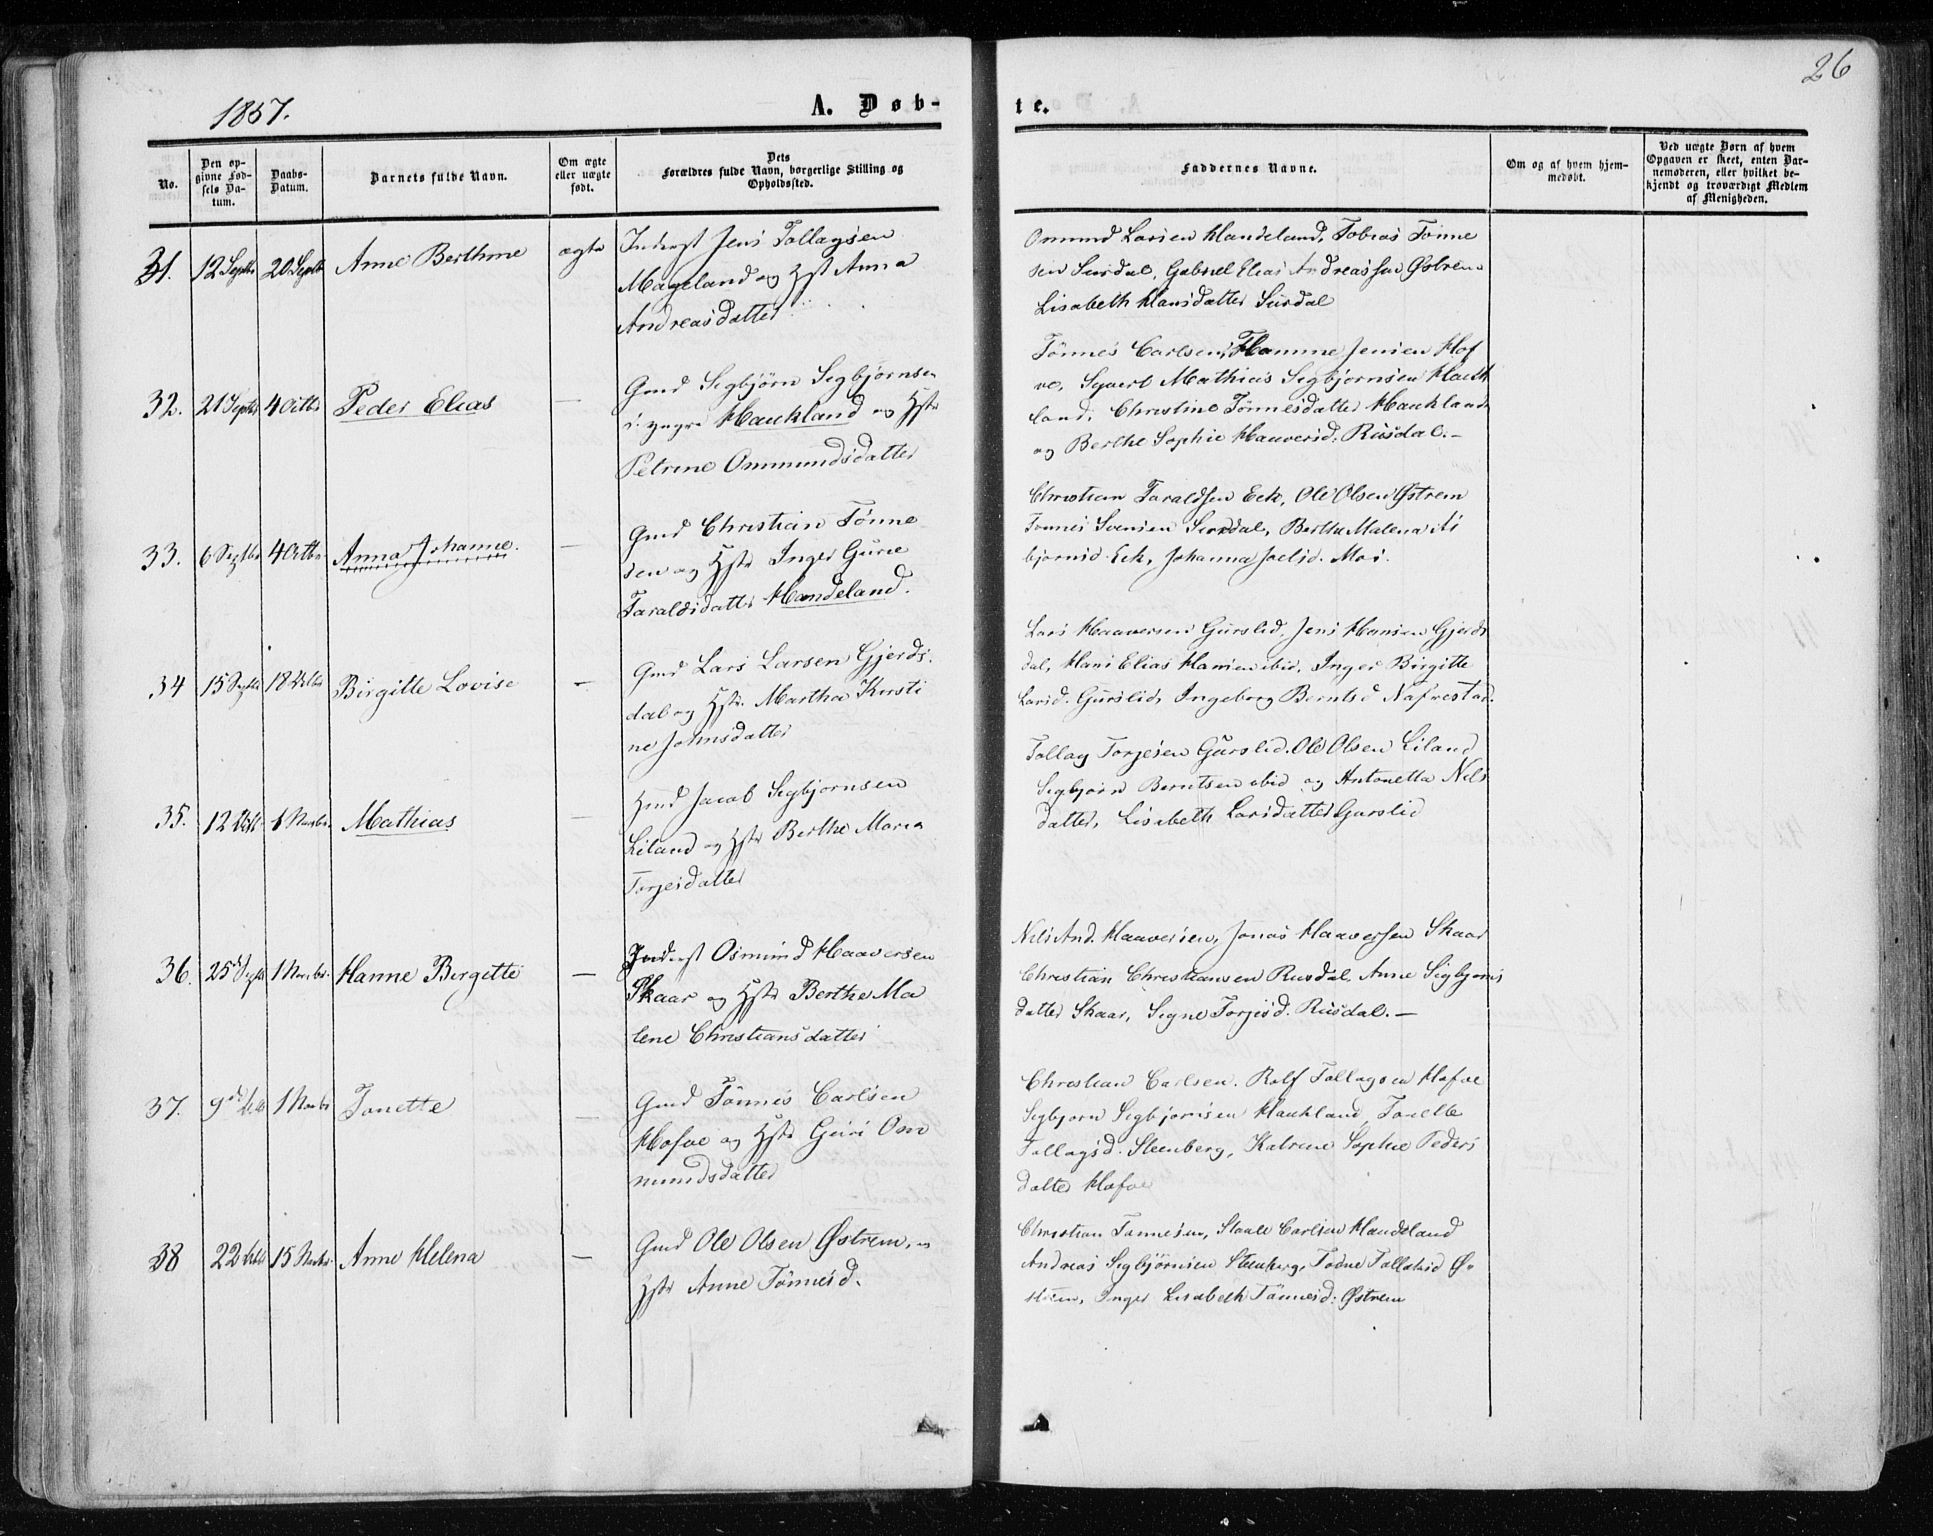 26
1857.
A. Døb-
te.
No.
Den op-
givne Fød-
sels Da-
tum.
Daabs-
Datum.
Barnets fulde Navn.
Om ægte
eller uægte
født.
Dets
Forældres fulde Navn, borgerlige Stilling og
Opholdssted.
Faddernes Navne.
Om og af hvem hjem-
medøbt.
Ved uægte Børn af hvem
Opgaven er skeet, enten Bar-
nemoderen, eller hvilket be-
kjendt og troværdigt Medlem
af Menigheden.
31. 12 Septbr 20 Septbr Anne Berthine ægte
Inderst Jens Tollagsen
Mageland og Hst Anna
Andreasdatter
Omund Larsen Handeland, Tobias Tønne
sen Surdal, Gabriel Elias Andreassen Østrem
Lisabeth Hansdatter Surdal
32. 21 Septbr 4 Octbr Peder Elias —
Gmd Segbjørn Segbjørnsen
i yngre Haukland og Hstr
Petrine Ommundsdatter
Tønnes Carlsen, Hamme Jensen Hof
ve, Syvert Mathias Segbjørnsen Hauk
land, Christine Tønnesdatter Haukland
og Berthe Sophie Haaversd. Rusdal. —
33. 6 Septbr 4 Octbr Anna Johanne. —
Gmd Christian Tønne
sen og Hstr Inger Gurie
Taraldsdatter Handeland.
Christian Taraldsen Eek, Ole Olsen Østrem
Tønnes Svensen Surdal, Berthe Malena As
bjørnsd. Eek, Johanna Joelsd. Moi.
34 15 Septbr 18 Octbr Birgitte Lovise —
Gmd Lars Larsen Gjerds
dal og Hstr. Martha Kirsti
ne Johnsdatter
Lars Haaversen Gurslid, Jens Hansen Gjerds
dal, Hans Elias Hansen ibid, Inger Birgitte
Larsd. Gurslid, Ingeborg Berntsd Nafrestad.
35. 12 Octbr 1 Novbr. Mathias —
Hmd Jacob Segbjørnsen
Liland og Hstr Berthe Maria
Torjesdatter
Tollag Torjesen Gurslid. Ole Olsen Liland
Segbjørn Berntsen ibid og Antonetta Nils
datter, Lisabeth Larsdatter Gurslid
36. 25de Septbr 1 Novbr. Hanne Birgitte —
Inderst Osmund Haaversen
Skaar og Hstr Berthe Ma
lene Christiansdatter
Nils And. Haaversen, Jonas Haaversen Skaar
Christian Christiansen Rusdal, Anne Sigbjørns
datter Skaar, Segne Torjesd. Rusdal. —
37. 9de Octbr 1 Novbr Tonette —
Gmd Tønnes Carlsen
Hofve og Hstr Guri Om
mundsdatter
Christian Carlsen. Rolf Tollagsen Hofve
Segbjørn Segbjørnsen Haukland, Tonette
Tollagsd. Steenberg, Katrine Sophie Peders
datter Hofve
38 22 Octbr 15 Novbr. Anne Helena —
Gmd Ole Olsen Østrem, og
Hstr Anne Tønnesd.
Christian Tønnesen, Staale Carlsen Handeland
Andreas Segbjørnsen Steenberg, Todne Tollaksd Ø-
strem, Inger Lisabeth Tønnesd: Østrem